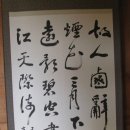 故人西辭
煙花三月下
遠影碧空盡
江天際流